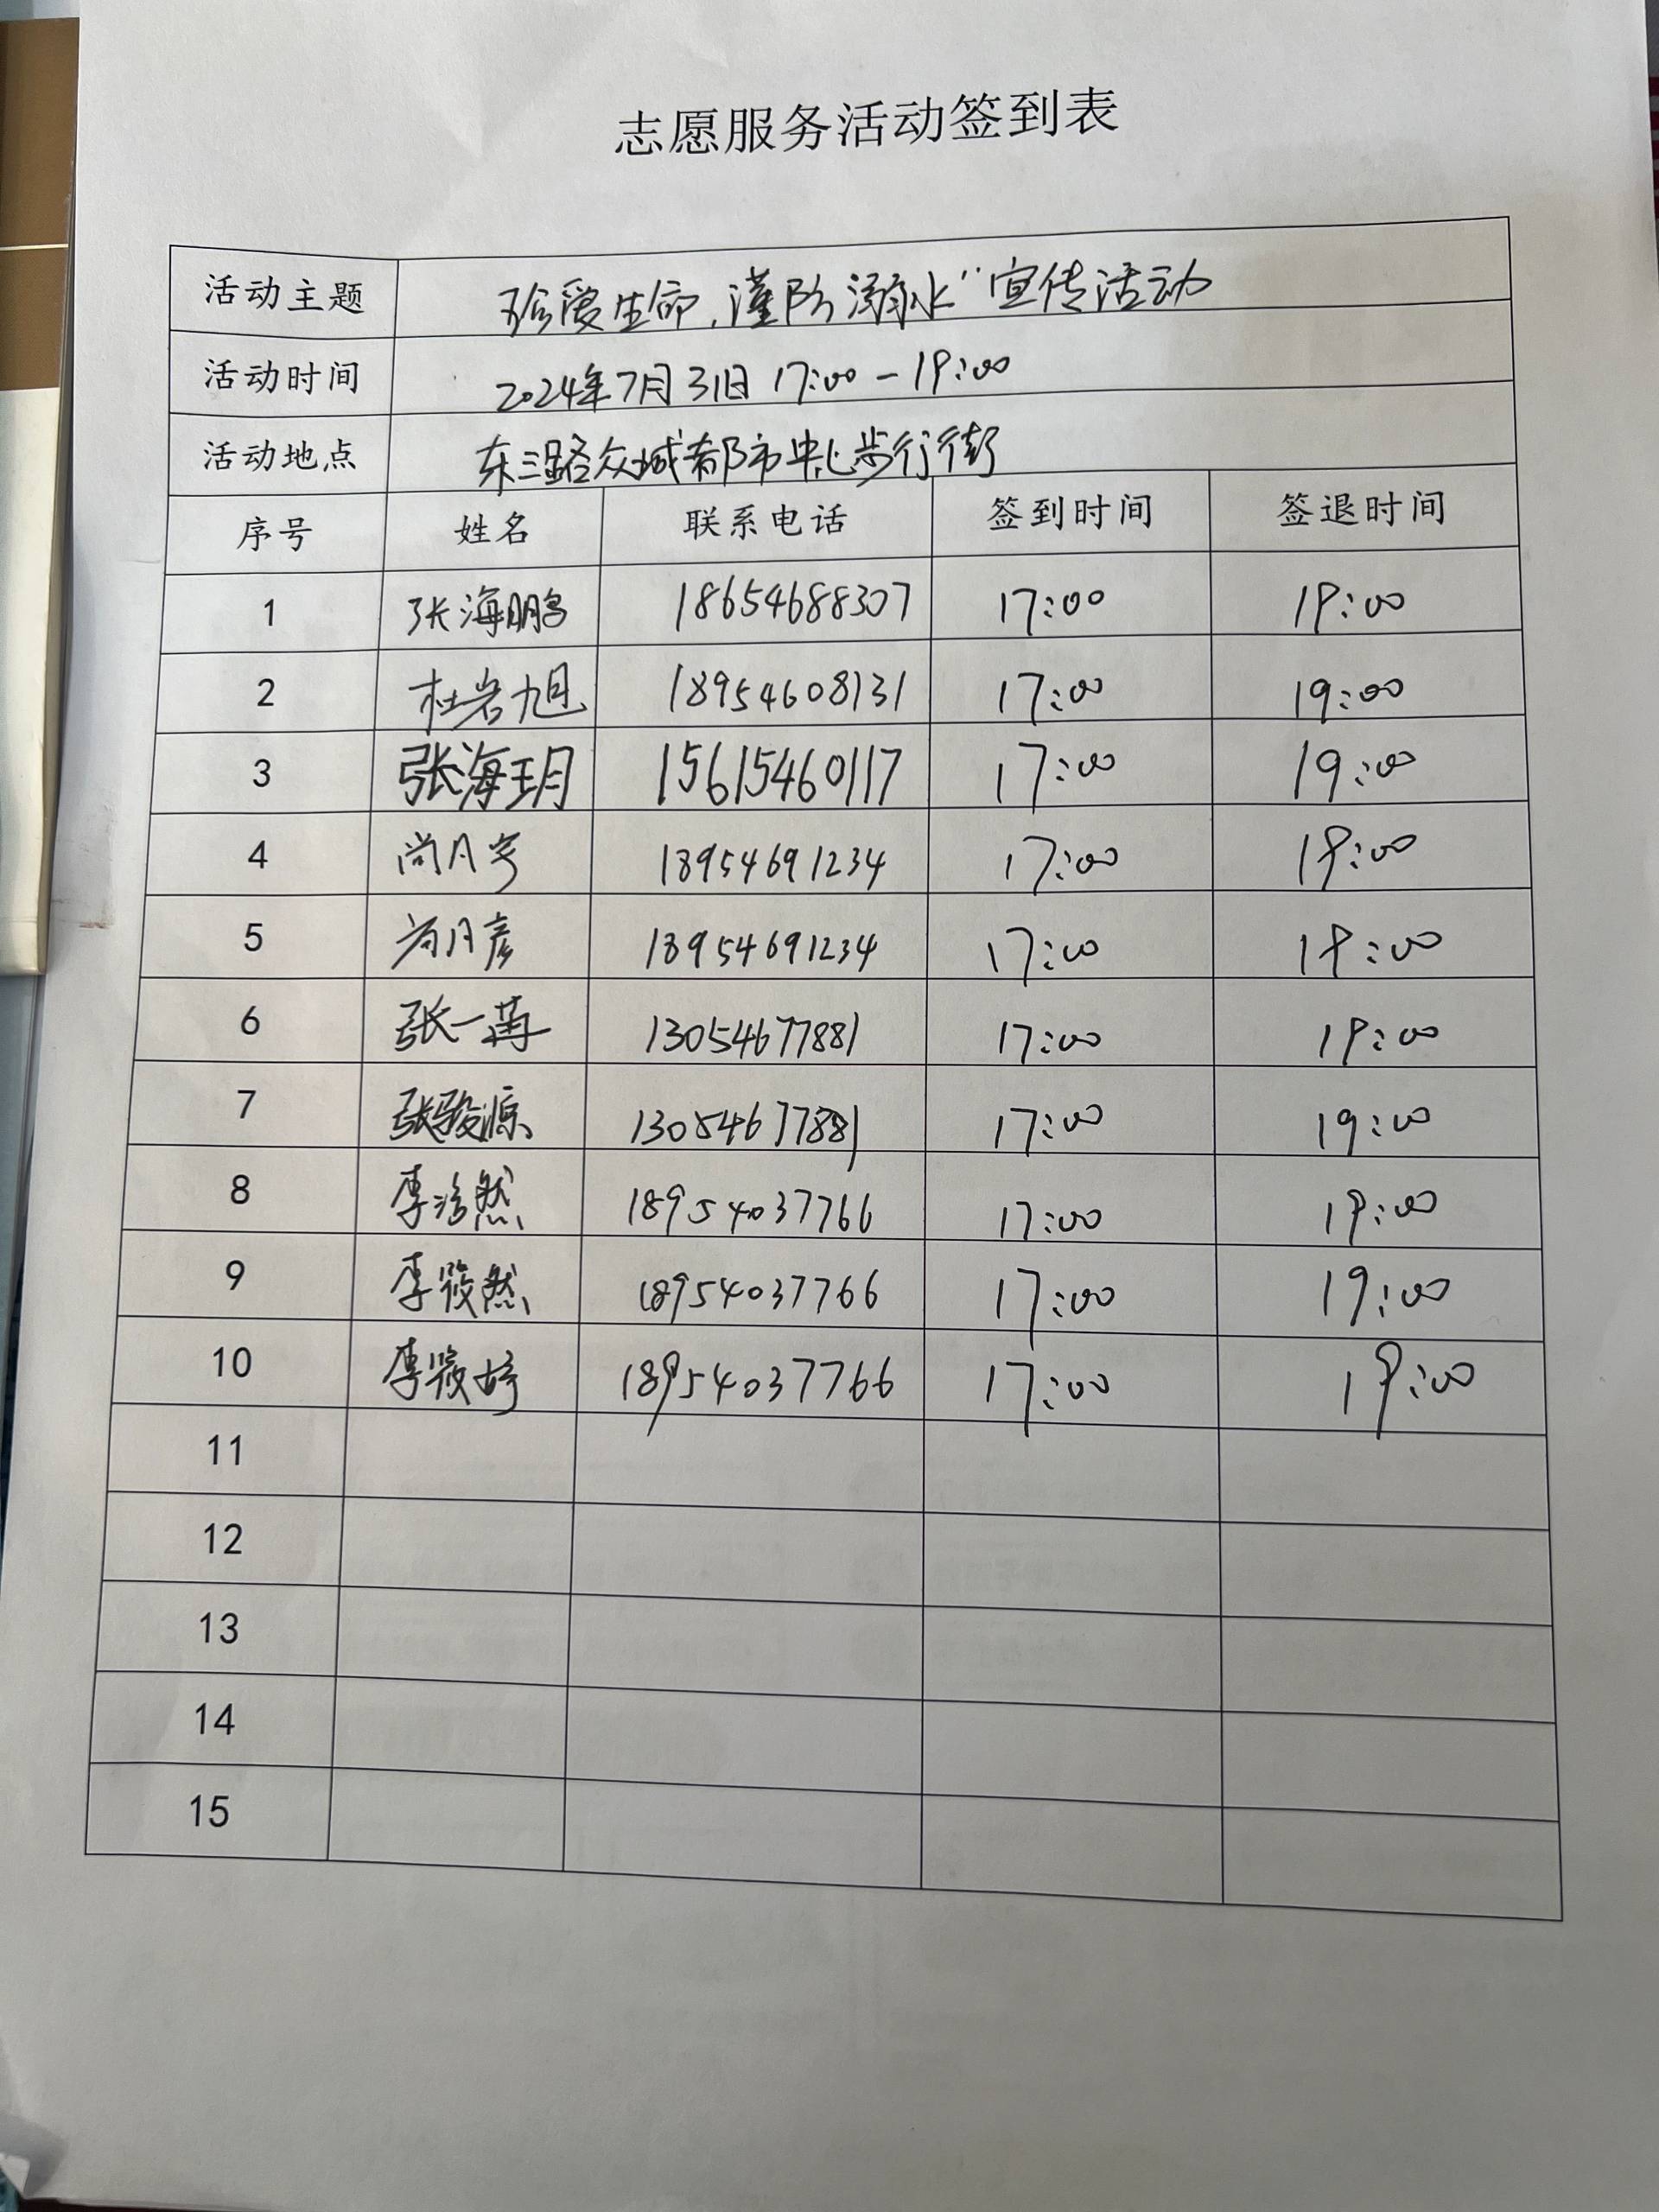 志愿服务活动签到表
活动主题 珍爱生命,谨防溺水"宣传活动
活动时间 2024年7月31日 17:00-19:00
活动地点 东三路众城都市中心步行街
序号 姓名 联系电话 签到时间 签退时间
1 张海鹏 18654688307 17:00 19:00
2 杜岩旭 18954608131 17:00 19:00
3 张海玥 15615460117 17:00 19:00
4 尚月 18954691234 17:00 19:00
5 尚月彦 18954691234 17:00 19:00
6 张一苒 13054677881 17:00 19:00
7 张骏源 13054677881 17:00 19:00
8 李浩然 18954037766 17:00 19:00
9 李筱然 18954037766 17:00 19:00
10 李筱婷 18954037766 17:00 19:00
11
12
13
14
15